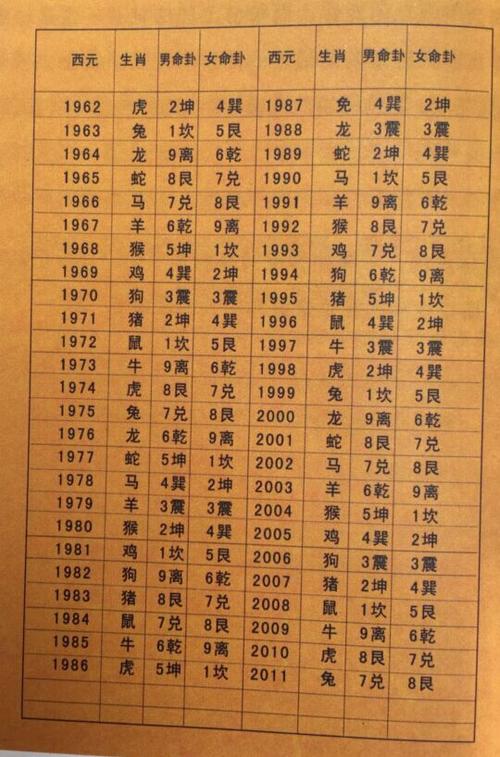 西元 生肖 男命卦 女命卦 西元 生肖 男命卦 女命卦
1962 虎 2坤 4巽 1987 兔 4巽 2坤
1963 兔 1坎 5艮 1988 龙 3震 3震
1964 龙 9离 6乾 1989 蛇 2坤 4巽
1965 蛇 8艮 7兑 1990 马 1坎 5艮
1966 马 7兑 8艮 1991 羊 9离 6乾
1967 羊 6乾 9离 1992 猴 8艮 7兑
1968 猴 5坤 1坎 1993 鸡 7兑 8艮
1969 鸡 4巽 2坤 1994 狗 6乾 9离
1970 狗 3震 3震 1995 猪 5坤 1坎
1971 猪 2坤 4巽 1996 鼠 4巽 2坤
1972 鼠 1坎 5艮 1997 牛 3震 3震
1973 牛 9离 6乾 1998 虎 2坤 4巽
1974 虎 8艮 7兑 1999 兔 1坎 5艮
1975 兔 7兑 8艮 2000 龙 9离 6乾
1976 龙 6乾 9离 2001 蛇 8艮 7兑
1977 蛇 5坤 1坎 2002 马 7兑 8艮
1978 马 4巽 2坤 2003 羊 6乾 9离
1979 羊 3震 3震 2004 猴 5坤 1坎
1980 猴 2坤 4巽 2005 鸡 4巽 2坤
1981 鸡 1坎 5艮 2006 狗 3震 3震
1982 狗 9离 6乾 2007 猪 2坤 4巽
1983 猪 8艮 7兑 2008 鼠 1坎 5艮
1984 鼠 7兑 8艮 2009 牛 9离 6乾
1985 牛 6乾 9离 2010 虎 8艮 7兑
1986 虎 5坤 1坎 2011 兔 7兑 8艮